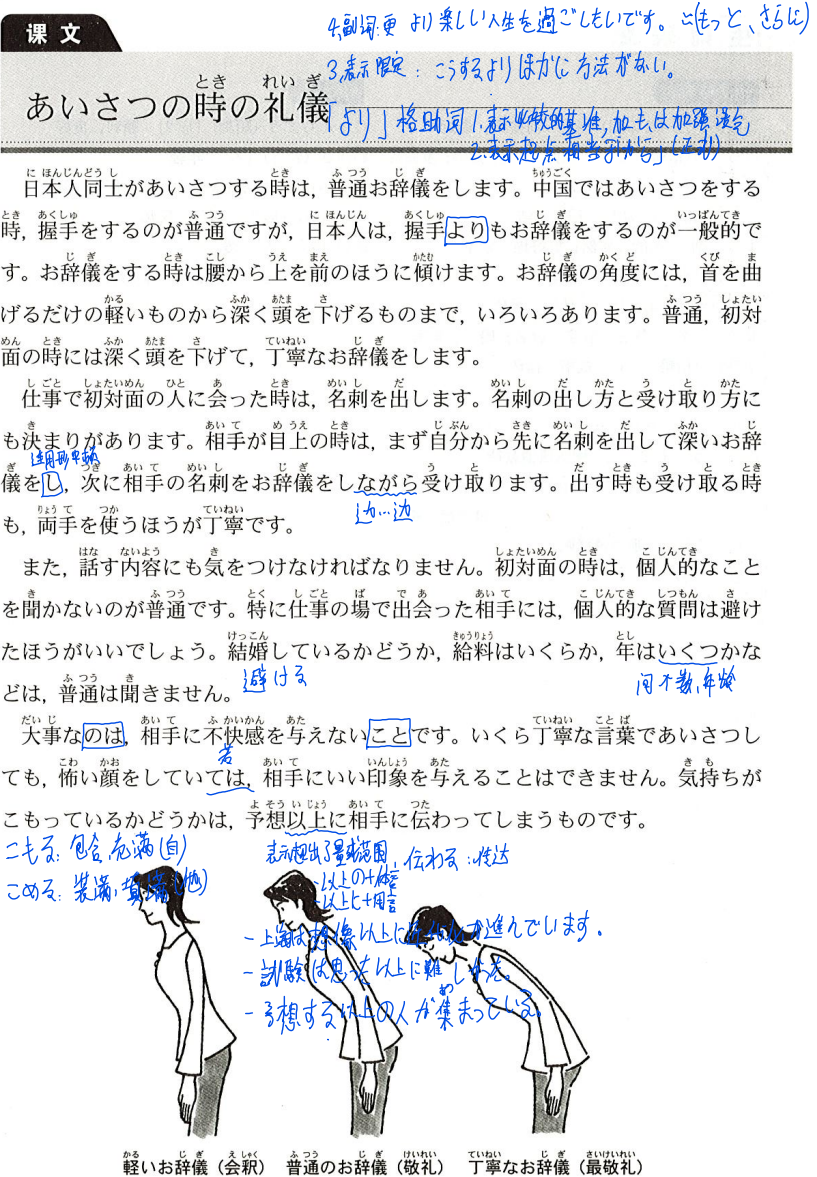 课文
4.副词:更 より楽しい人生を過ごしたいです。≒(もっと、さらに)
3.表示限定：こうするよりほかに方法がない。
あいさつの時の礼儀
「より」格助词 1.表示比较的基准,加も、は加强语气
2.表示起点 相当于「から」(正式)
日本人同士があいさつする時は, 普通お辞儀をします。中国ではあいさつをする
時, 握手をするのが普通ですが, 日本人は, 握手よりもお辞儀をするのが一般的で
す。お辞儀をする時は腰から上を前のほうに傾けます。お辞儀の角度には, 首を曲
げるだけの軽いものから深く頭を下げるものまで, いろいろあります。普通, 初対
面の時には深く頭を下げて, 丁寧なお辞儀をします。
仕事で初対面の人に会った時は, 名刺を出します。名刺の出し方と受け取り方に
も決まりがあります。相手が目上の時は, まず自分から先に名刺を出して深いお辞
连用形中顿
儀をし, 次に相手の名刺をお辞儀をしながら受け取ります。出す時も受け取る時
も, 両手を使うほうが丁寧です。
边…边
また, 話す内容にも気をつけなければなりません。初対面の時は, 個人的なこと
を聞かないのが普通です。特に仕事の場で出会った相手には, 個人的な質問は避け
たほうがいいでしょう。結婚しているかどうか, 給料はいくらか, 年はいくつかな
どは, 普通は聞きません。
避ける
问个数,年龄
大事なのは, 相手に不快感を与えないことです。いくら丁寧な言葉であいさつし
若
ても, 怖い顔をしていては, 相手にいい印象を与えることはできません。気持ちが
こもっているかどうかは, 予想以上に相手に伝わってしまうものです。
こもる：包含,充满(自)
こめる：装满,填满(他)
表示超出了某种范围
伝わる：传达
-以上の+体言
-以上に+用言
-上海は想像以上に進んでいます。
-試験は思った以上に難しかった。
-予想する以上の人が集まっている。
軽いお辞儀（会釈）
普通のお辞儀（敬礼）
丁寧なお辞儀（最敬礼）